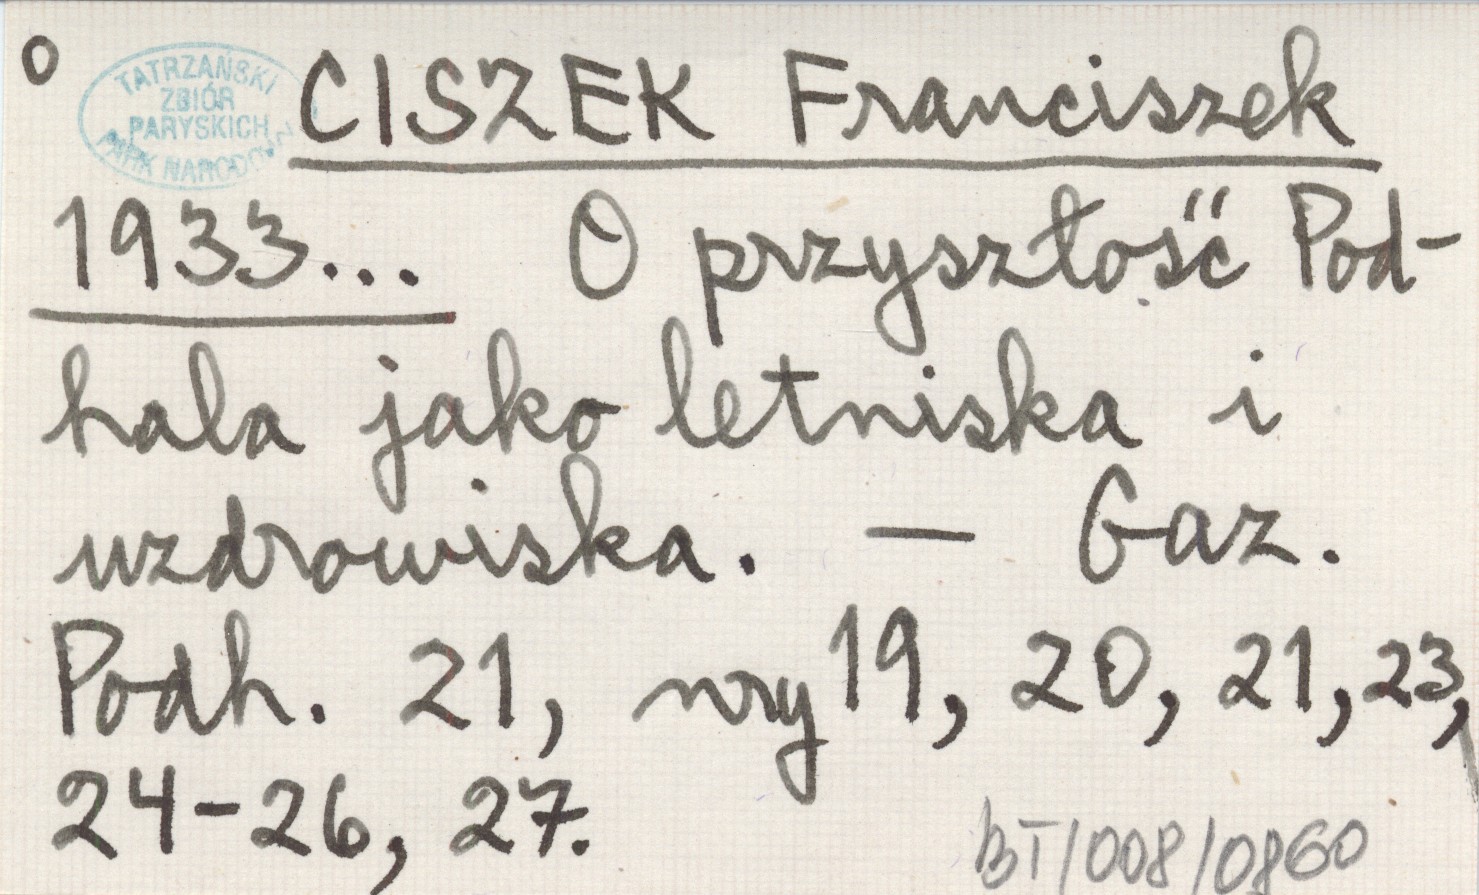 o
TATRZAŃSKI
ZBIÓR
PARYSKICH
PARK NARODOWY
CISZEK Franciszek
1933... O przyszłość Pod-
hala jako letniska i
uzdrowiska. — Gaz.
Podh. 21, nry 19, 20, 21, 23,
24-26, 27.
BT/008/0860